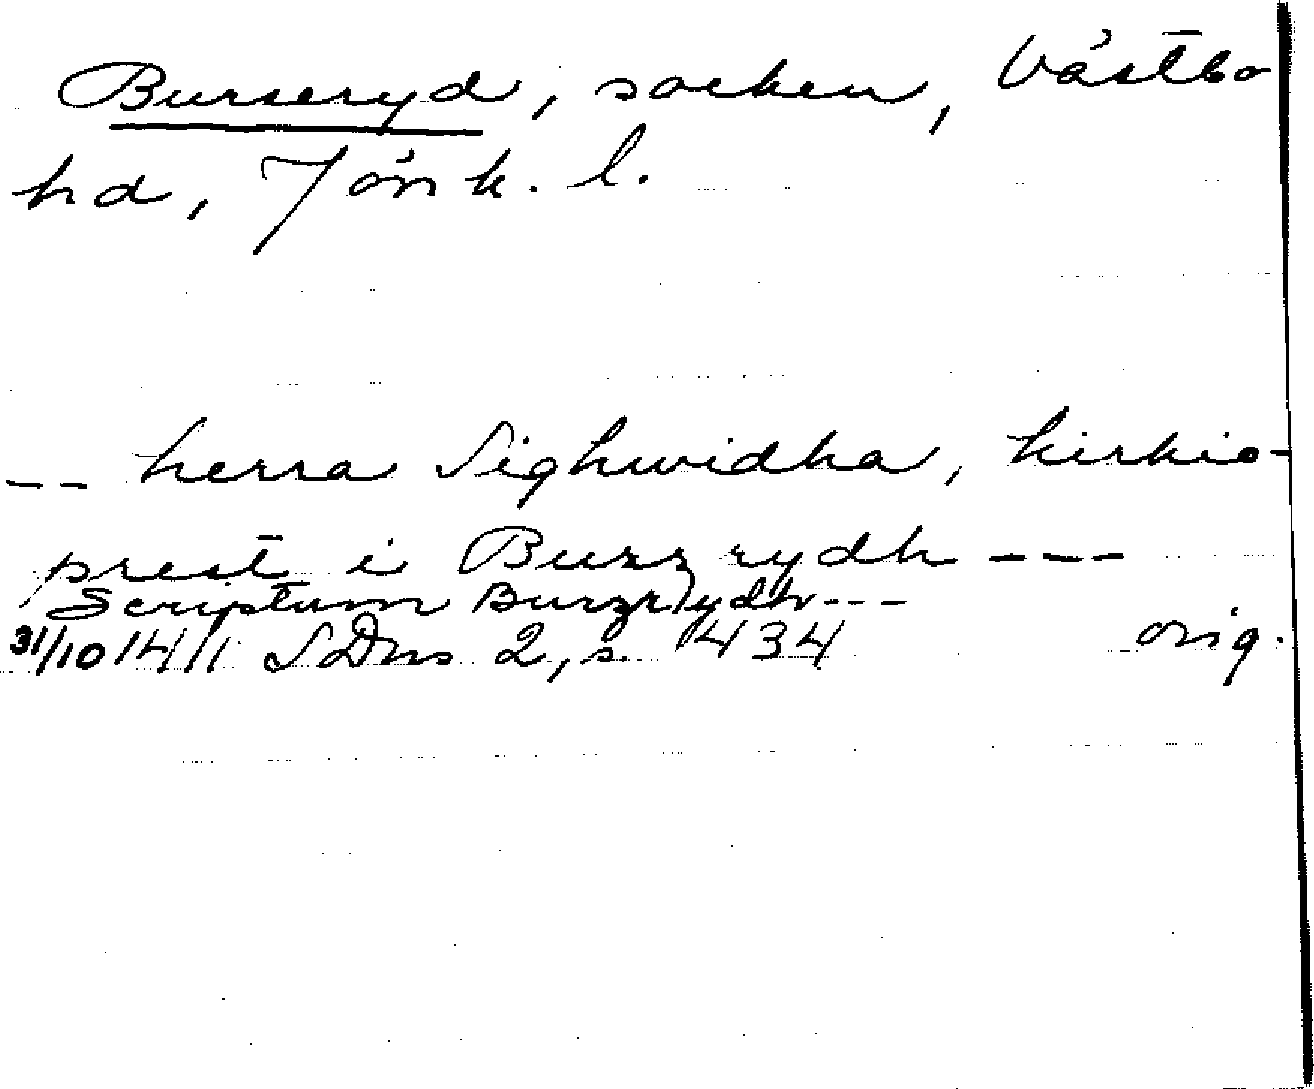 Burseryd, socken, Västbo
hd, Jönk. l.
-- herra Sighwidha, kirkio-
prest i Burzrydh ---
Scriptum Burzrydh ---
31/10 1411 SDns 2, s. 434 orig.